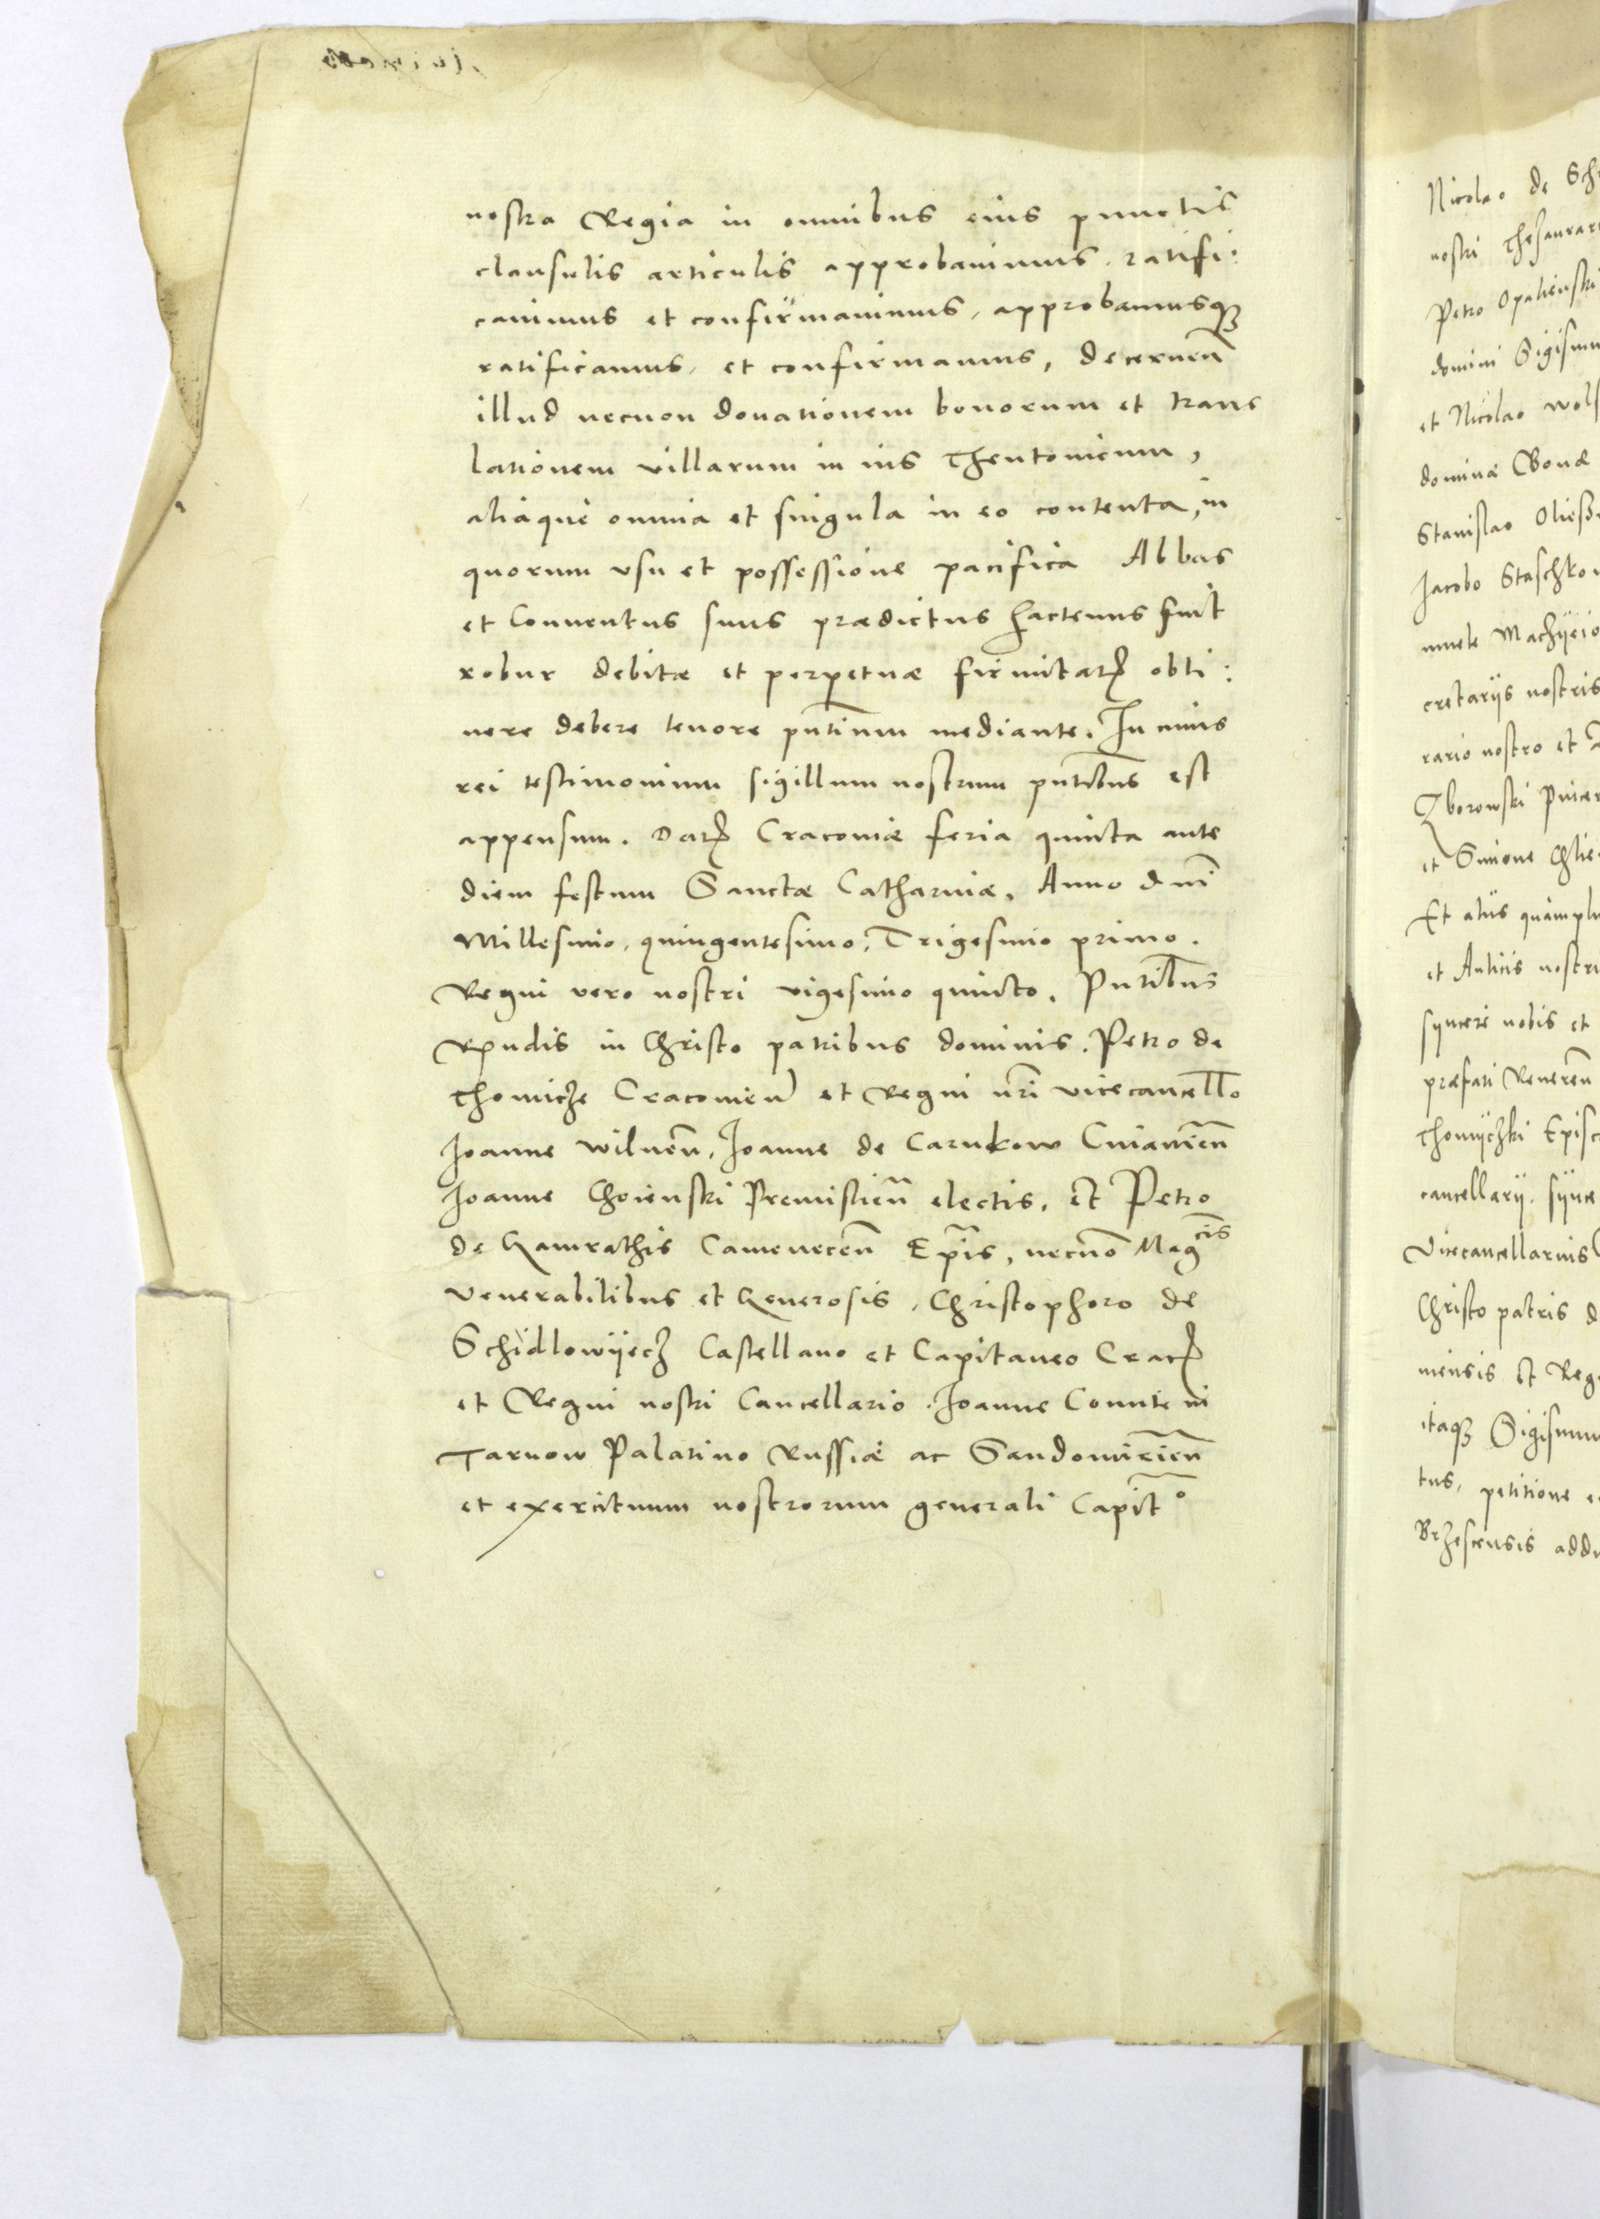 nostra Regia in omnibus eius punctis
clausulis articulis approbauimus ratifi:
cauimus et confirmauimus, approbamusqꝫ
ratificamus, et confirmamus, decernen̄
illud necnon donationem bonorum et trans
lationem villarum in ius Theutonicum,
aliaque omnia et singula in eo contenta, in
quorum vsu et possessione pacifica Abbas
et Conuentus suus prædictus hactenus fuit
robur debitæ et perpetuæ firmitatꝭ obti:
nere debere tenore pñtium mediante. In cuius
rei testimonium sigillum nostrum pñtibus est
appensum. Datꝭ Cracouiæ feria quinta ante
diem festum Sanctæ Catharinæ, Anno dñi
Millesimo, quingentesimo, Trigesimo primo.
Regni vero nostri vigesimo quinto. Pñtibus
Rṇdis in Christo patribus dominis. Petro de
Thomicze Cracouien̄ et Regni nr̄i vicecancell̄o
Joanne wilnen̄, Joanne de Carnkow Cuiauien̄
Joanne Choienski Premislien̄ electis, et Petro
de Gamrathis Camenecen̄ Ep̄is, necno͞ Mag^cis
Venerabilibus et Generosis, Christophoro de
Schidlowÿecz Castellano et Capitaneo Cracꝭ
et Regni nostri Cancellario. Joanne Comite in
Tarnow Palatino Russiæ ac Sandomirien̄
et exercituum nostrorum generali Capit°
Nicolao de
nostri
Petro Opalienski
domini
et Nicolao
dominæ Bonæ
Stanislao
Jacobo
cretarÿs nostris
rario nostro et
Zborowski
et
Et alÿs
et Aulicis
syncere nobis et
præfati
Thomÿczki
cancellarÿ.
Vicecancellarius
Christo patris
itaqꝫ
tus, petitione